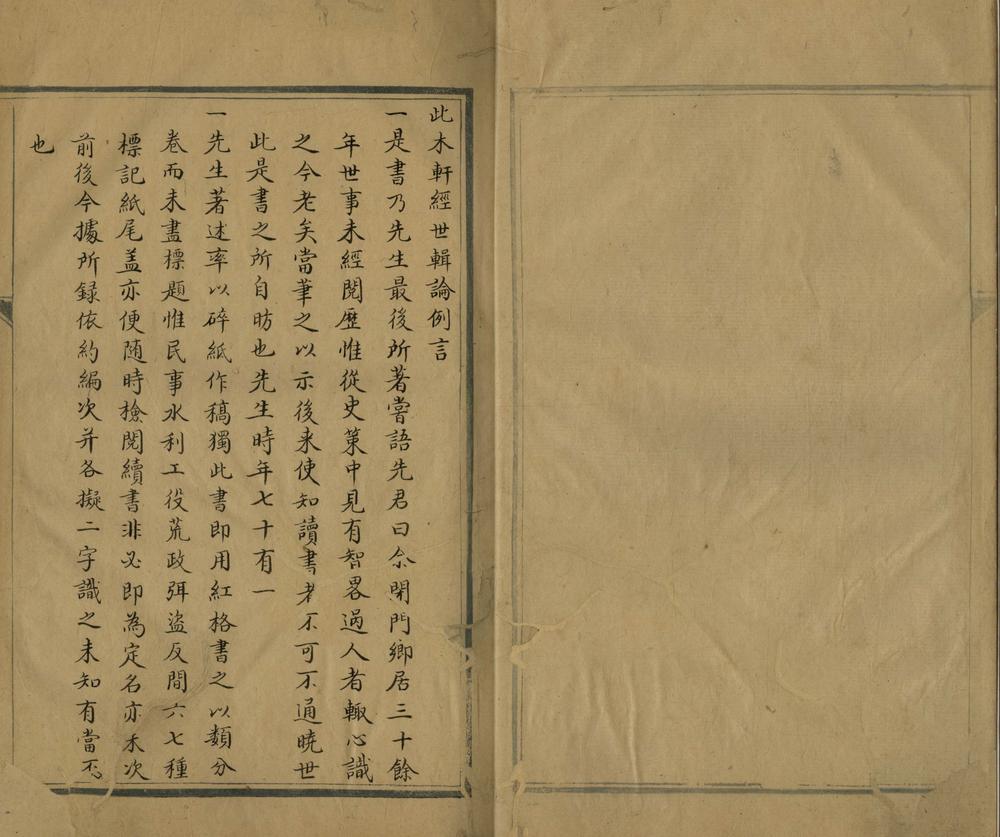 此木軒經世輯論例言
一是書乃先生最後所著嘗語先君曰余閉門鄉居三十餘
年世事未經閱歷惟從史策中見有智畧過人者輙心識
之今老矣當筆之以示後来使知讀書者不可不通曉世
此是書之所自昉也先生時年七十有一
一先生著述率以碎紙作稿獨此書即用紅格書之以類分
卷而未盡標題惟民事水利工役荒政弭盜反間六七種
標記紙尾盖亦便随時撿閱續書非必即為定名亦未次
前後今據所録依約編次并各擬二字識之未知有當否
也